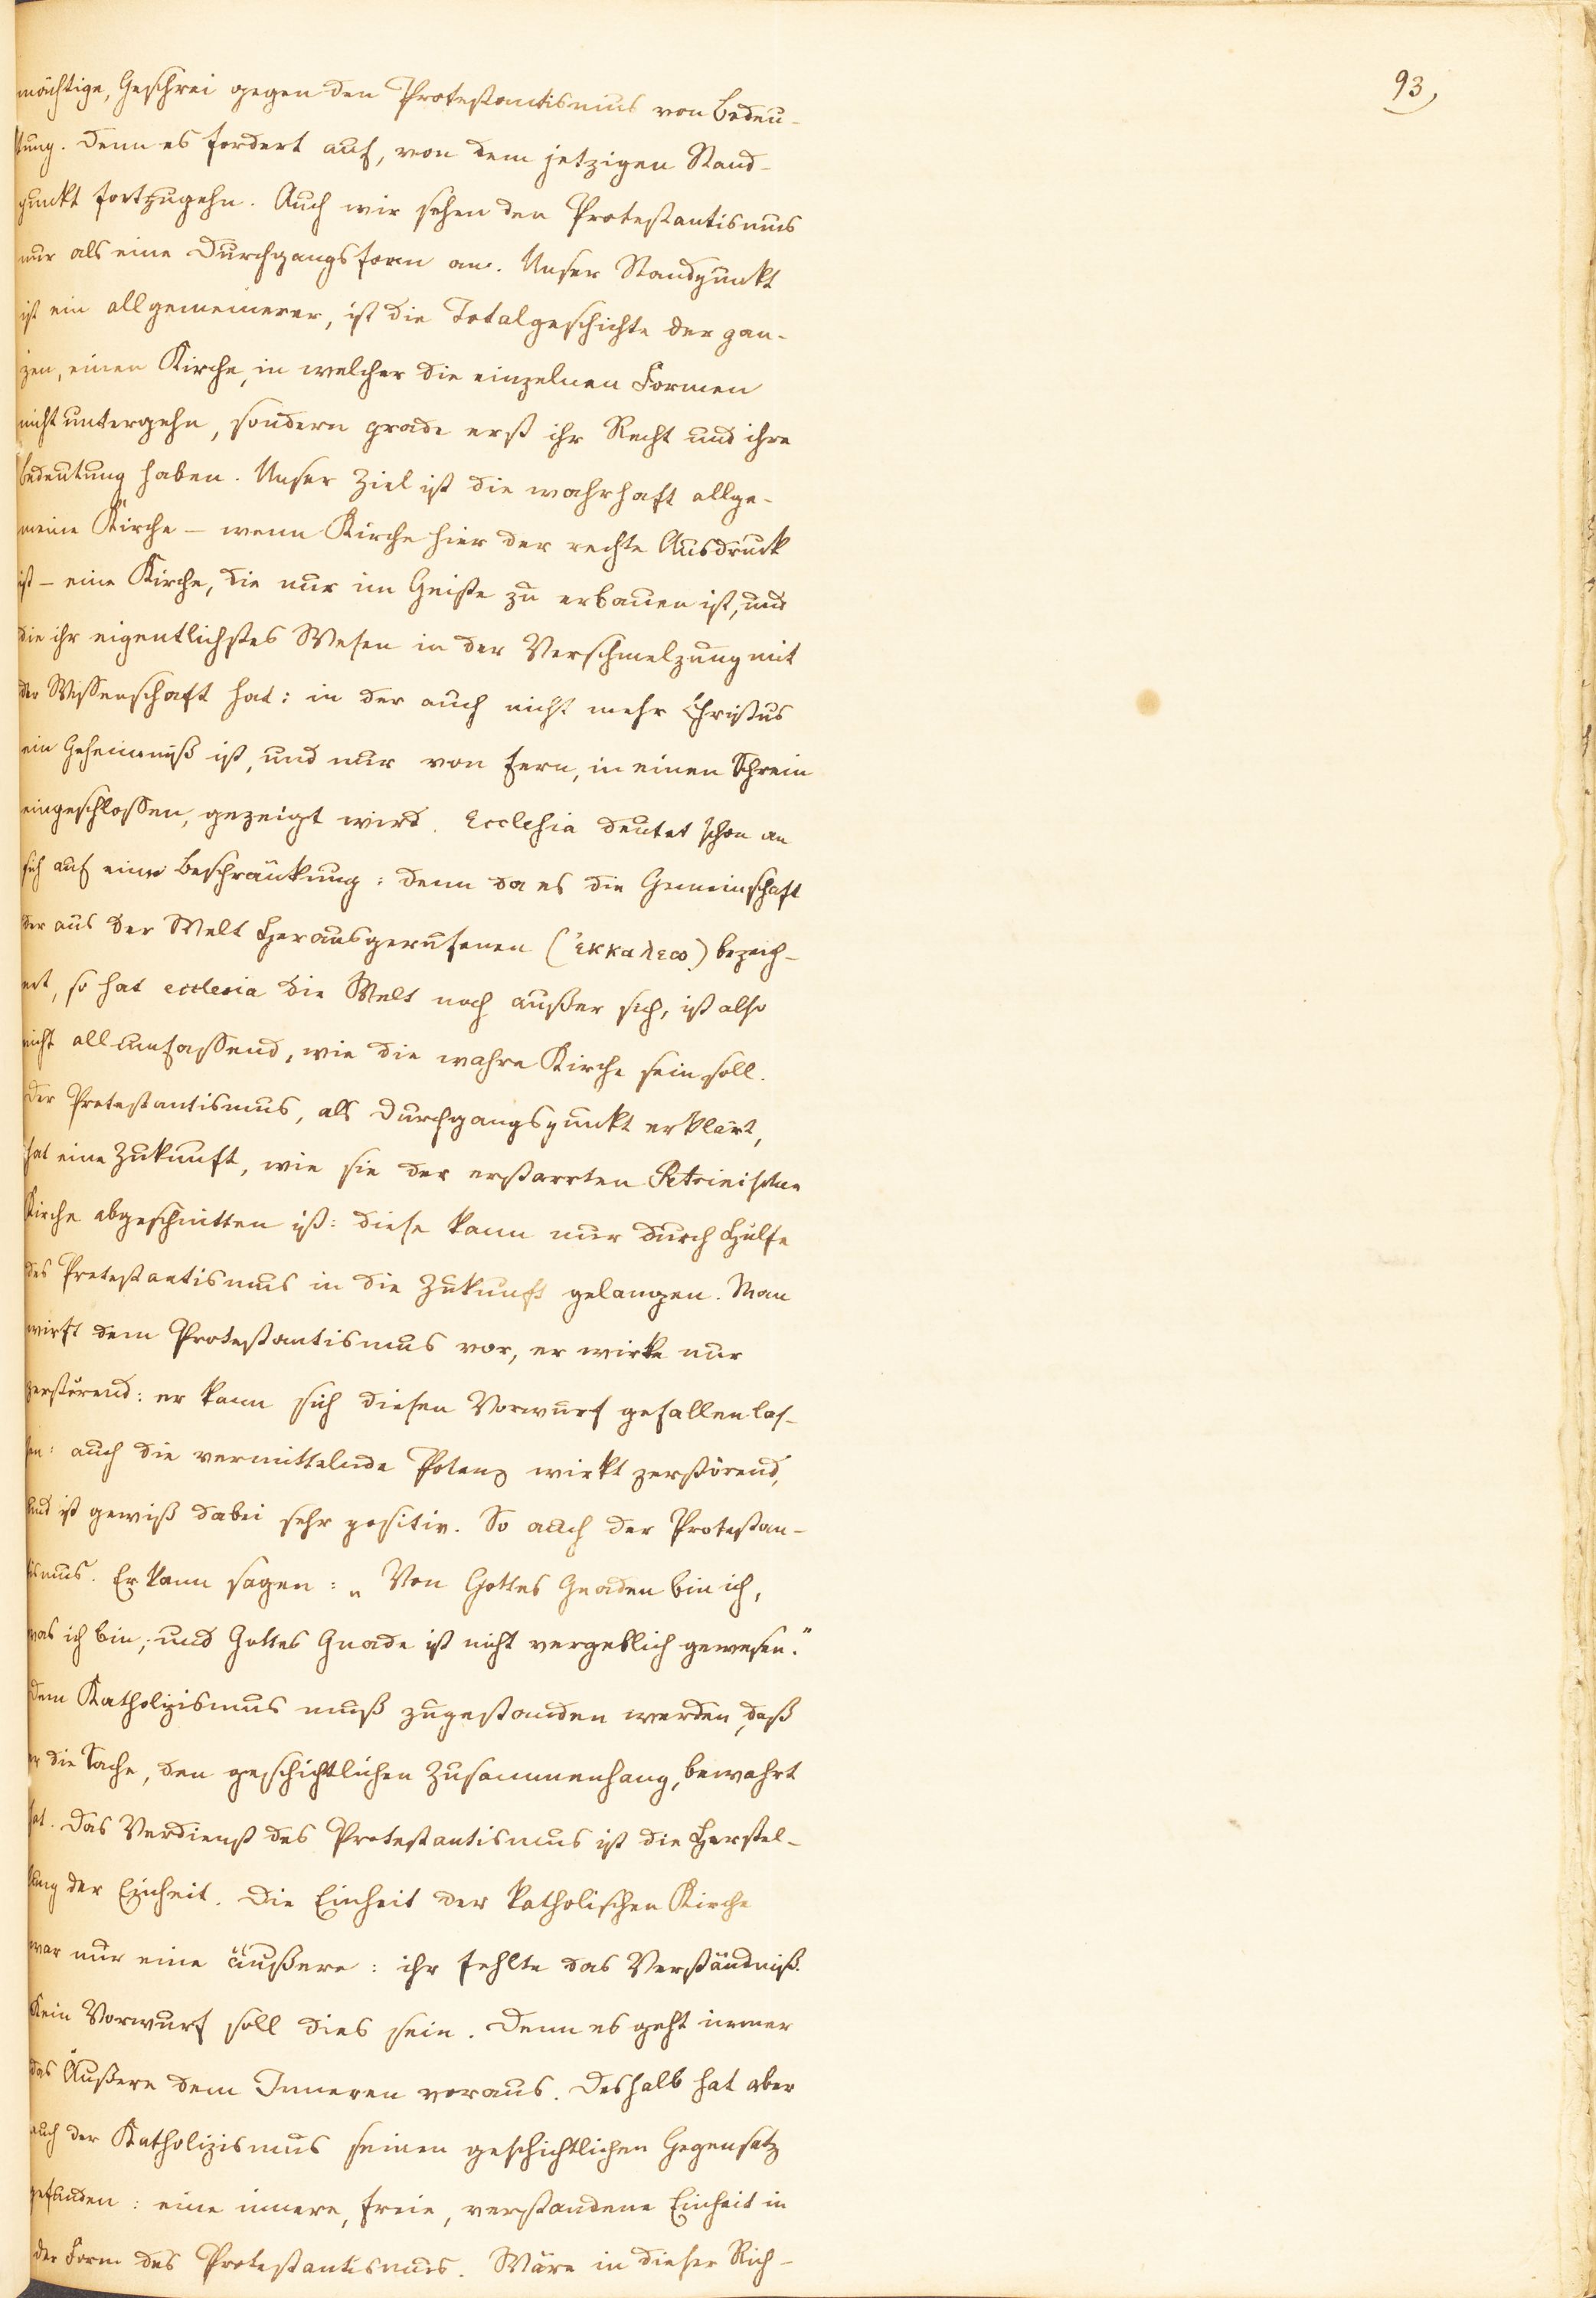 93,
mächtige, Geschrei gegen den Protestantismus von Bedeu-
tung. Denn es fordert auf, von dem jetzigen Stand-
punkt fortzugehn. Auch wir sehen den Protestantismus
nur als eine Durchgangsform an. Unser Standpunkt
ist ein allgemeinerer, ist die Totalgeschichte der gan-
zen, einen Kirche, in welcher die einzelnen Formen
nicht untergehn, sondern grade erst ihr Recht und ihre
Bedeutung haben. Unser Ziel ist die wahrhaft allge-
meine Kirche – wenn Kirche hier der rechte Ausdruck
ist – eine Kirche, die nur im Geiste zu erbauen ist, und
die ihr eigentlichstes Wesen in der Verschmelzung mit
der Wissenschaft hat: in der auch nicht mehr Christus
ein Geheimniß ist, und nur von fern, in einen Schrein
eingeschlossen, gezeigt wird. Ecclesia deutet schon an
sich auf eine Beschränkung: denn da es die Gemeinschaft
der aus der Welt Herausgerufenen (ἐκκαλεω) bezeich-
net, so hat ecclesia die Welt noch außer sich, ist also
nicht allumfassend, wie die wahre Kirche sein soll.
Der Protestantismus, als Durchgangspunkt erklärt,
hat eine Zukunft, wie sie der erstarrten Petrinischen
Kirche abgeschnitten ist: diese kann nur durch Hülfe
des Protestantismus in die Zukunft gelangen. Man
wirft dem Protestantismus vor, er wirke nur
zerstörend: er kann sich diesen Vorwurf gefallen las-
sen: auch die vermittelnde Potenz wirkt zerstörend,
und ist gewiß dabei sehr positiv. So auch der Protestan-
tismus. Er kann sagen: „Von Gottes Gnaden bin ich,
was ich bin, und Gottes Gnade ist nicht vergeblich gewesen.“
Dem Katholizismus muß zugestanden werden, daß
er die Sache, den geschichtlichen Zusammenhang, bewahrt
hat. Das Verdienst des Protestantismus ist die Herstel-
lung der Einheit. Die Einheit der katholischen Kirche
war nur eine äußere: ihr fehlte das Verständniß.
Kein Vorwurf soll dies sein. Denn es geht immer
das Äußere dem Inneren voraus. Deshalb hat aber
auch der Katholizismus seinen geschichtlichen Gegensatz
gefunden: eine innere, freie, verstandene Einheit in
der Form des Protestantismus. Wäre in dieser Rich-